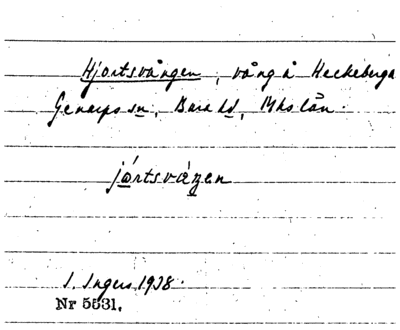 Hjortsvången, vång å Heckeberga
Genarps sn, Bara hd, Mhs län.
jårtsvàŋen
I. Ingers 1938.
Nr 5531.